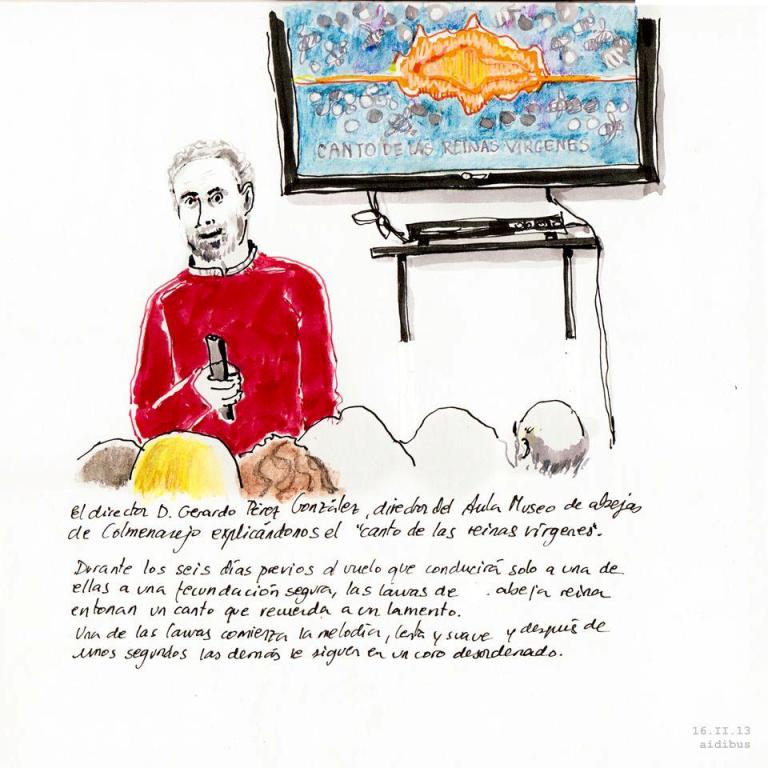 CANTO DE LAS REINAS VÍRGENES
El director D. Gerardo Pérez González, director del Aula Museo de abejas
de Colmenarejo explicándonos el "canto de las reinas vírgenes".
Durante los seis días previos al vuelo que conducirá solo a una de
ellas a una fecundación segura, las larvas de abeja reina
entonan un canto que recuerda a un lamento.
Una de las larvas comienza la melodía, lenta y suave y después de
unos segundos las demás le siguen en un coro desordenado.
16.II.13
aidibus